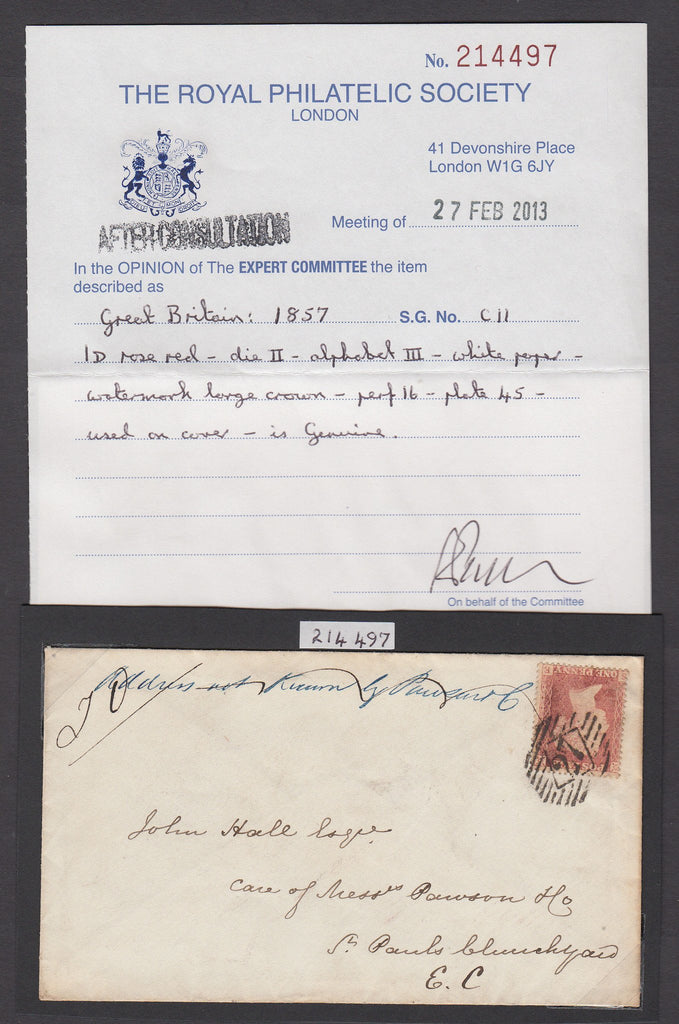 No. 214497
THE ROYAL PHILATELIC SOCIETY
LONDON
41 Devonshire Place
London W1G 6JY
AFTER CONSULTATION
Meeting of 27 FEB 2013
In the OPINION of The EXPERT COMMITTEE the item
described as
Great Britain: 1857 S.G. No. C11
1D rose red - die II - alphabet III - white paper -
watermark large crown - perf 16 - plate 45 -
used on cover - is Genuine.
On behalf of the Committee
214 497
Address not Known by Pawson & Co
ONE PENNY
John Hall Esqre
Care of Messrs Pawson & Co
St Pauls Churchyard
E.C